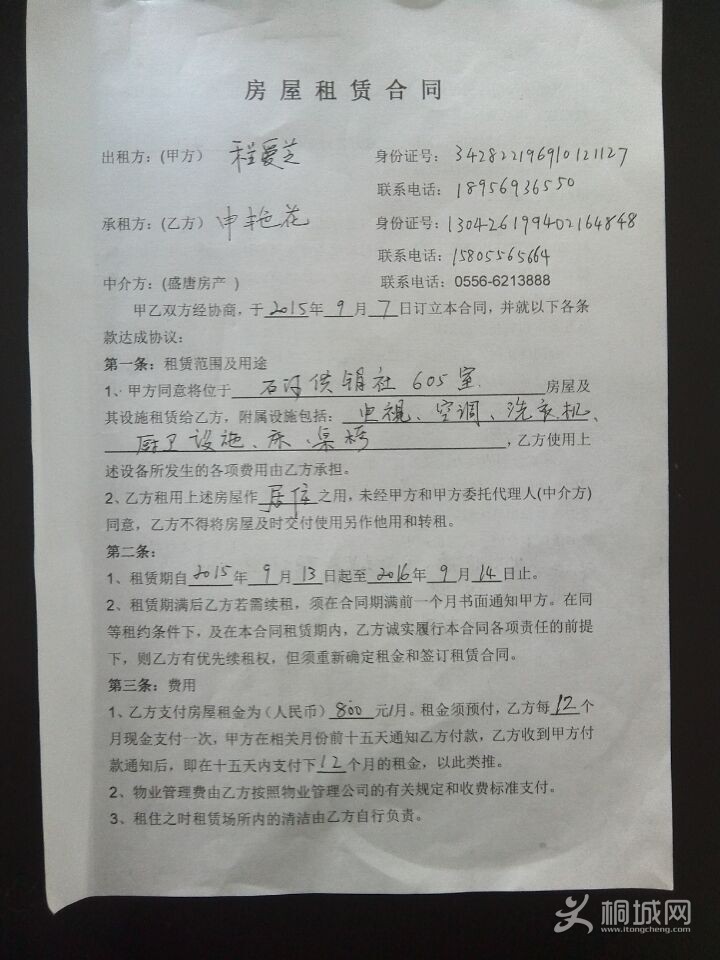 房屋租赁合同
出租方：(甲方） 程爱芝 身份证号： 342822196910121127
联系电话： 18956936550
承租方：(乙方） 申艳花 身份证号： 130426199402164848
联系电话： 15805565664
中介方：(盛唐房产 ） 联系电话：0556-6213888
甲乙双方经协商，于 2015 年 9 月 7 日订立本合同，并就以下各条
款达成协议：
第一条：租赁范围及用途
1、甲方同意将位于 石河供销社 605室 房屋及
其设施租赁给乙方，附属设施包括： 电视、空调、洗衣机、
厨卫设施、床、桌椅 ，乙方使用上
述设备所发生的各项费用由乙方承担。
2、乙方租用上述房屋作 居住 之用，未经甲方和甲方委托代理人(中介方)
同意，乙方不得将房屋及时交付使用另作他用和转租。
第二条：
1、租赁期自 2015 年 9 月 13 日起至 2016 年 9 月 14 日止。
2、租赁期满后乙方若需续租，须在合同期满前一个月书面通知甲方。在同
等租约条件下，及在本合同租赁期内，乙方诚实履行本合同各项责任的前提
下，则乙方有优先续租权，但须重新确定租金和签订租赁合同。
第三条：费用
1、乙方支付房屋租金为（人民币） 800 元/月。租金须预付，乙方每 12 个
月现金支付一次，甲方在相关月份前十五天通知乙方付款，乙方收到甲方付
款通知后，即在十五天内支付下 12 个月的租金，以此类推。
2、物业管理费由乙方按照物业管理公司的有关规定和收费标准支付。
3、租住之时租赁场所内的清洁由乙方自行负责。
桐城网
www.itongcheng.com